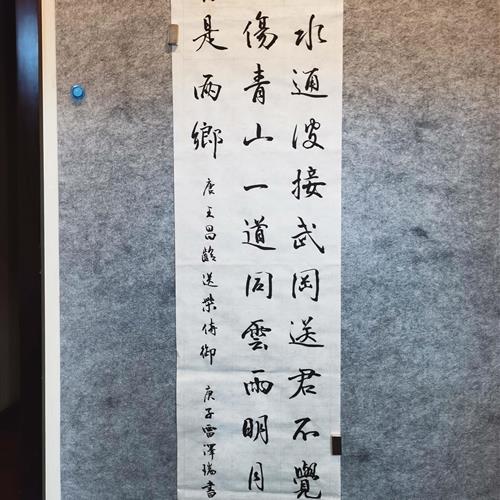 水通波接武岡送君不覺
傷青山一道同雲雨明月
是兩鄉
唐王昌齡送柴侍御 庚子雷澤瑞書